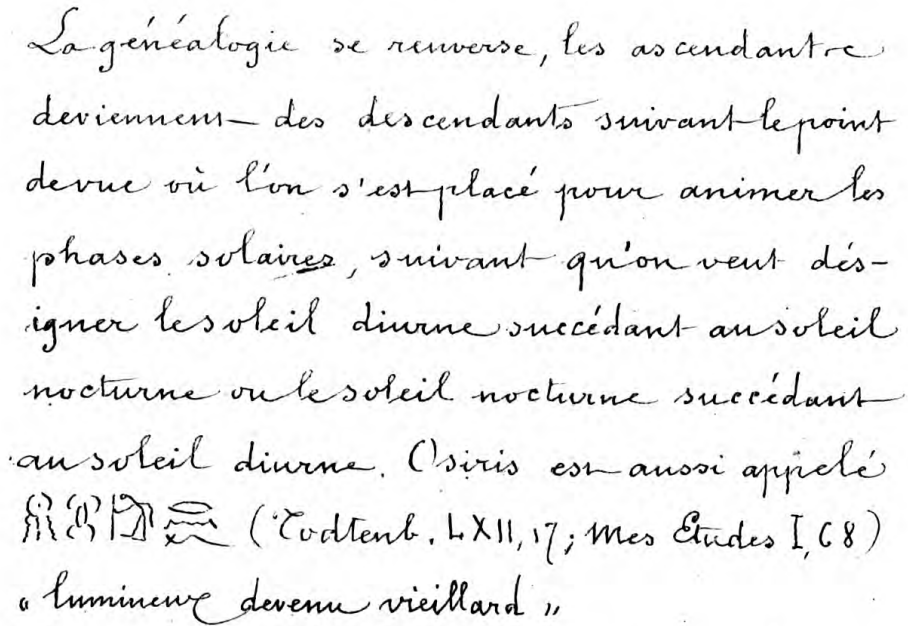 La généalogie se renverse, les ascendants
deviennent des descendants suivant le point
de vue où l'on s'est placé pour animer les
phases solaires, suivant qu'on veut dés-
igner le soleil diurne succédant au soleil
nocturne ou le soleil nocturne succédant
au soleil diurne. Osiris est aussi appelé
(Todtenb. LXII, 17; Mes Etudes I, 68)
« lumineux devenu vieillard »